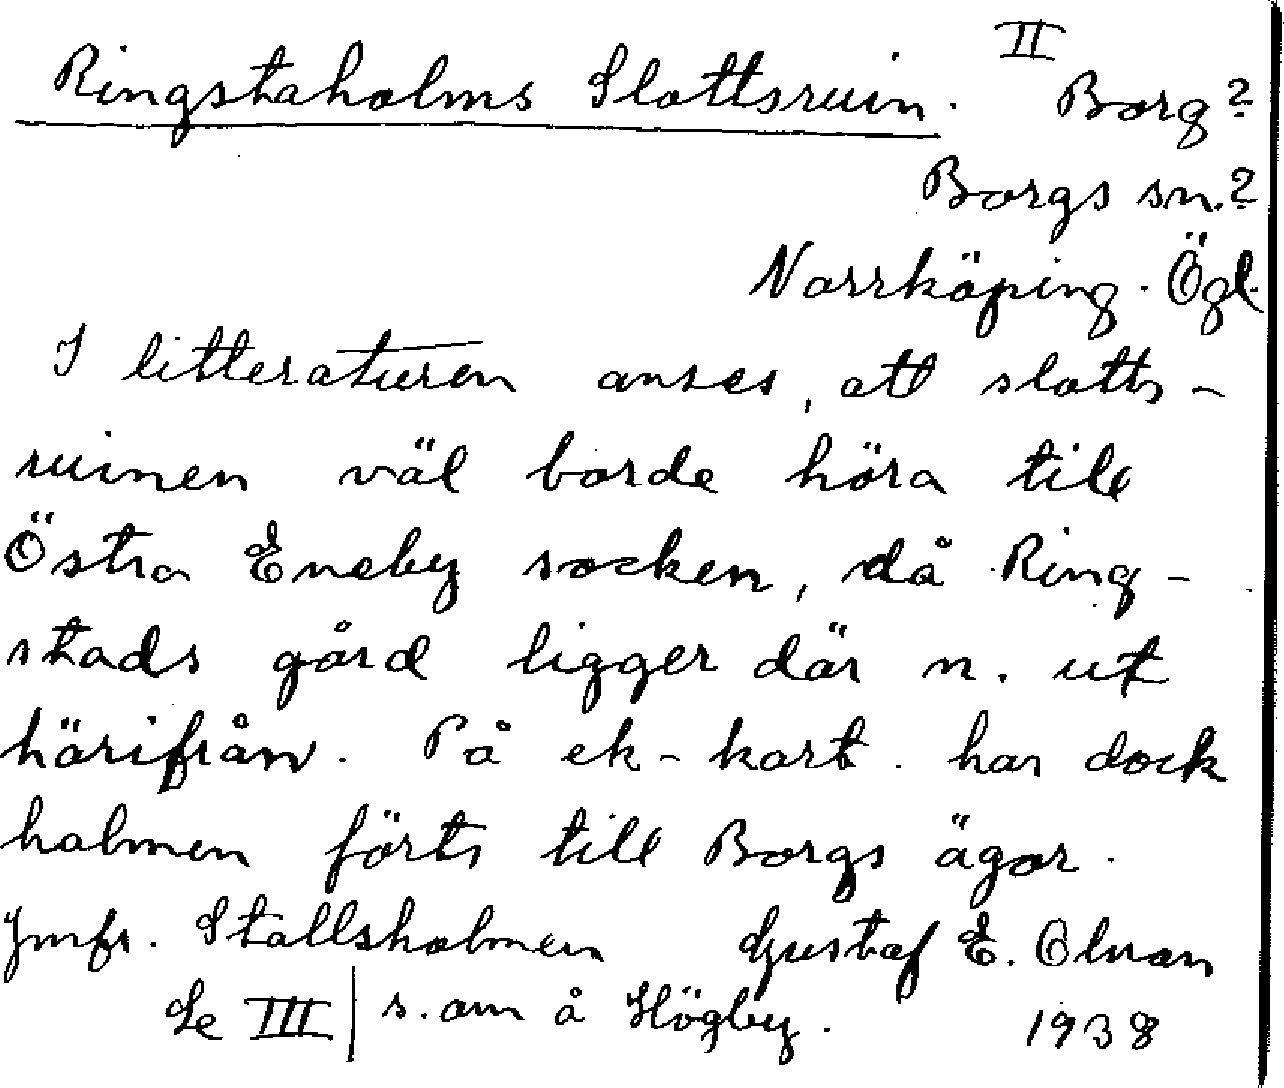 II
Ringstaholms Slottsruin. Borg?
Borgs sn.?
Norrköping. Ögl.
I litteraturen anses, att slotts-
ruinen väl borde höra till
Östra Eneby socken, då Ring-
stads gård ligger där n. ut
härifrån. På ek-kart. har dock
holmen förts till Borgs ägor.
Jmfr. Stallsholmen Gustaf E. Olsson
Se III | s. om å Högby. 1938